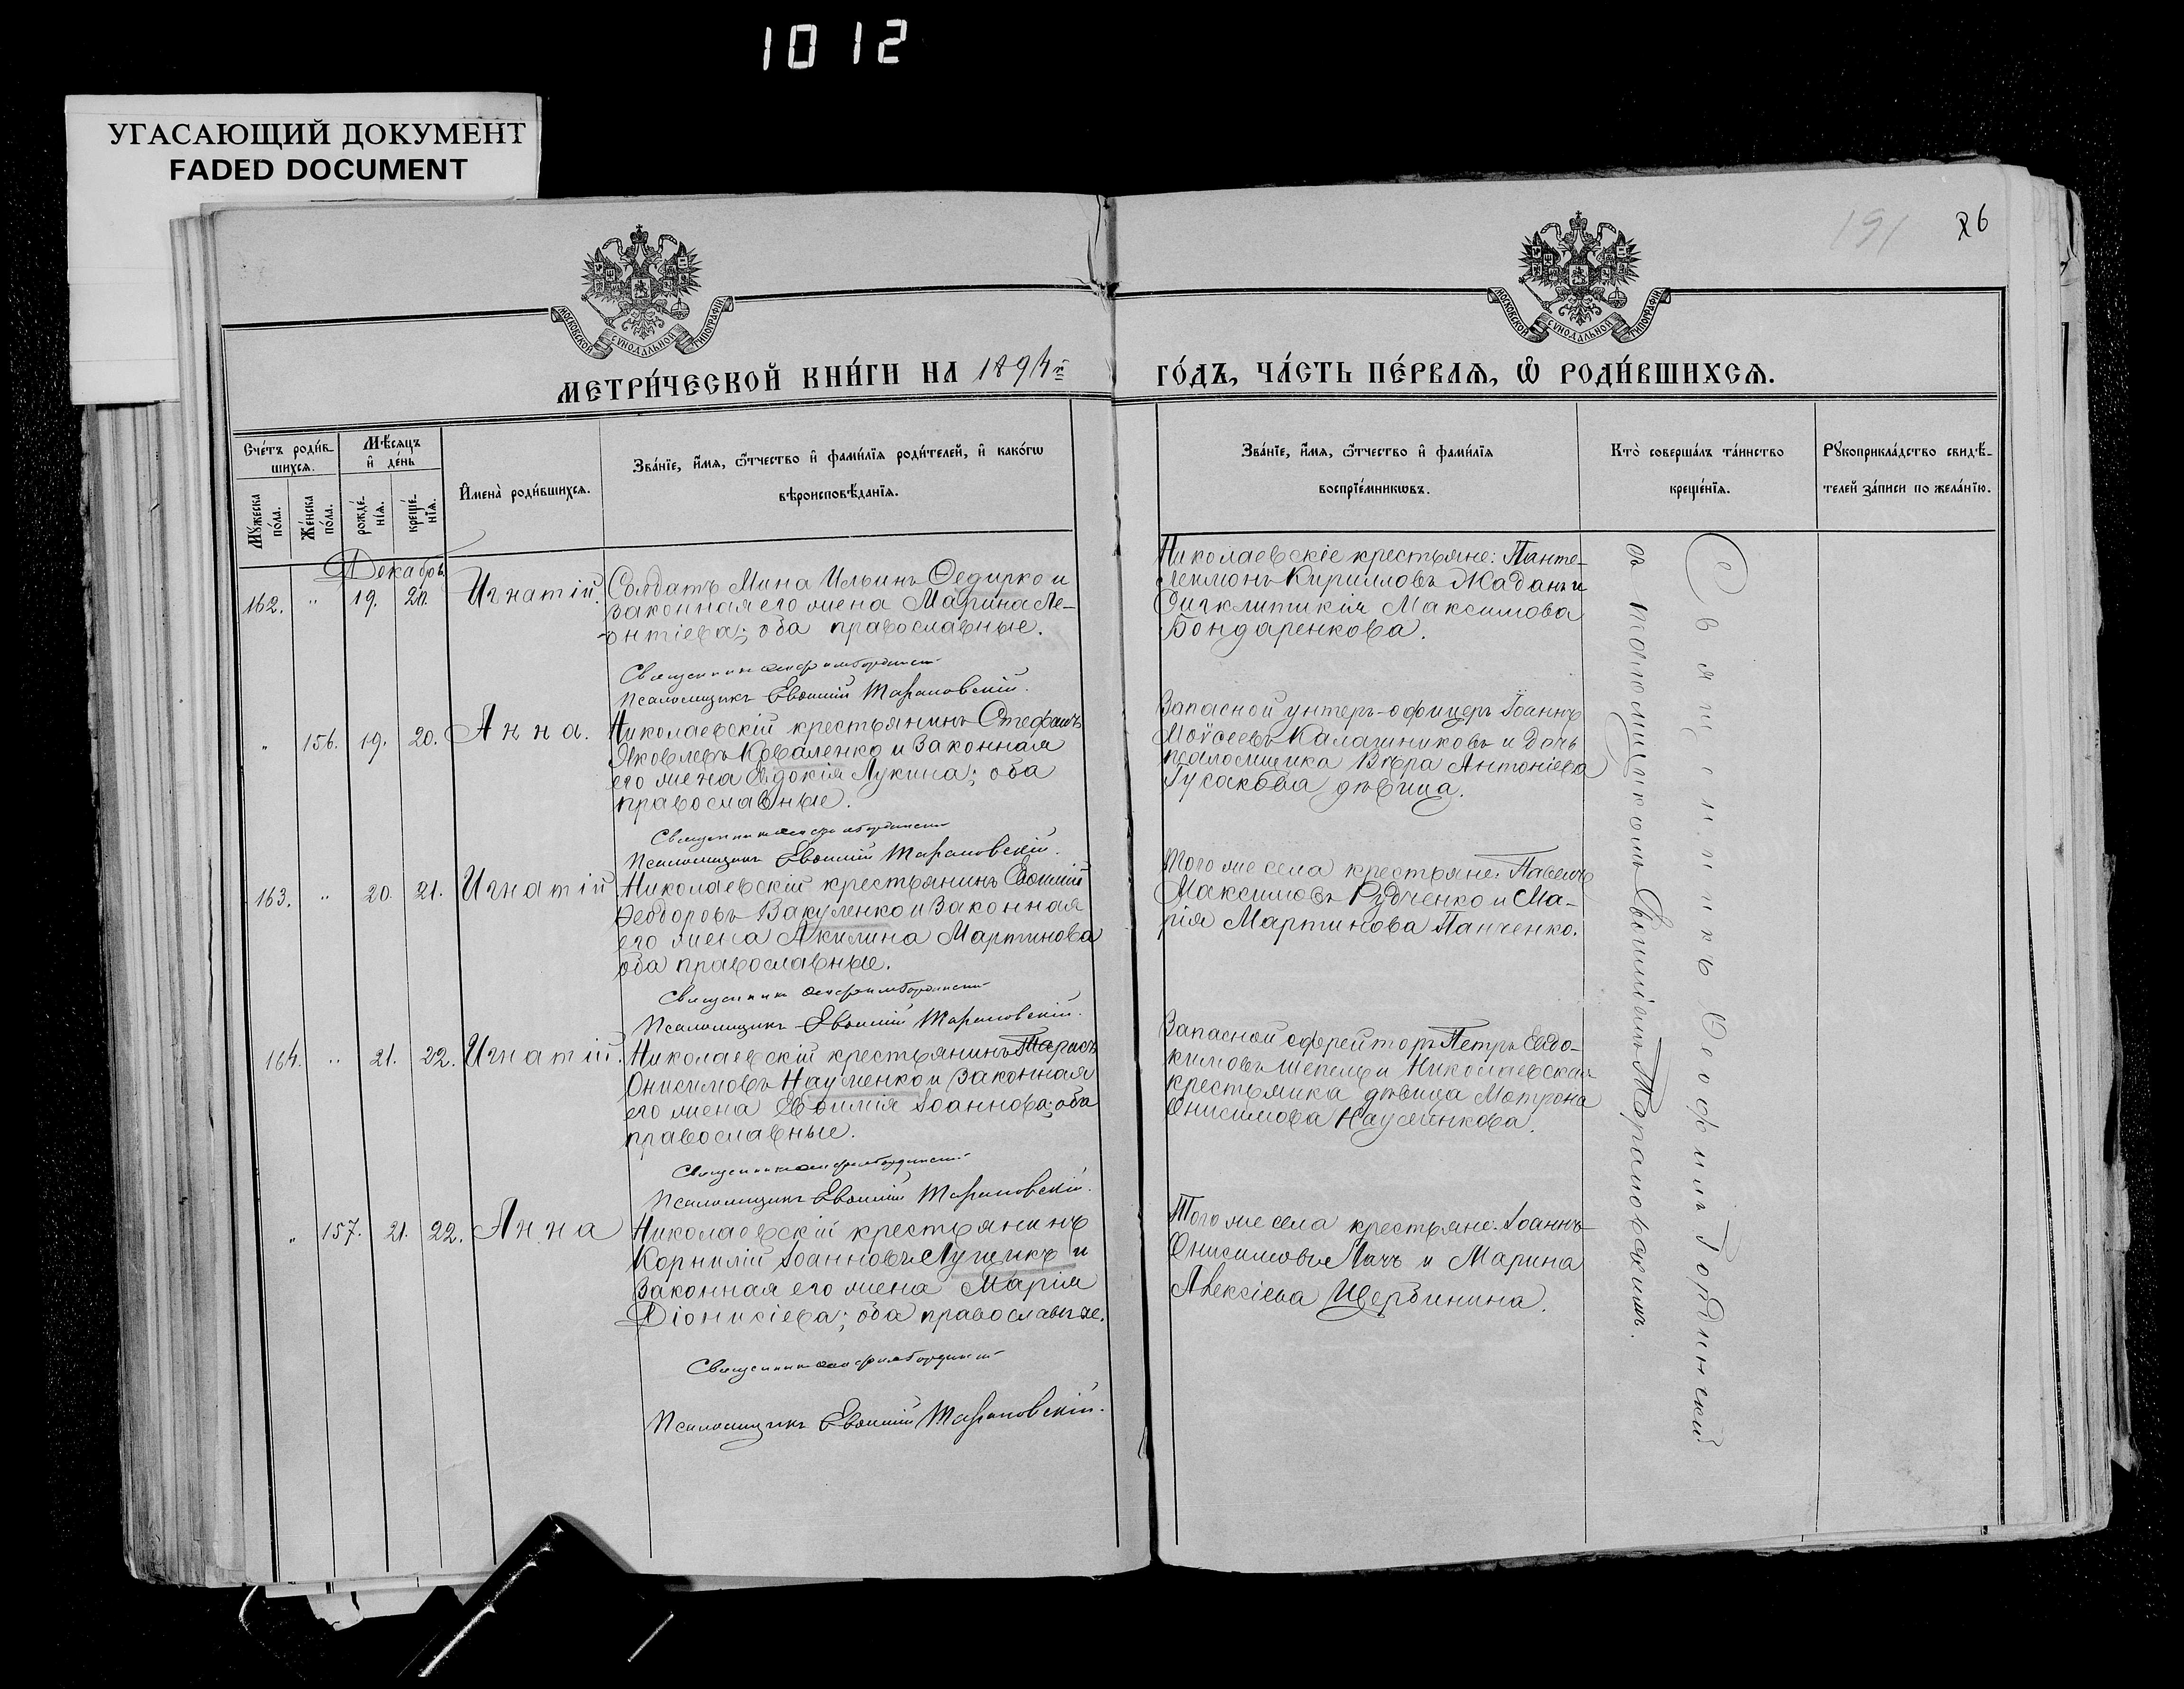 1012
УГАСАЮЩИЙ ДОКУМЕНТ
FADED DOCUMENT
191
26
МОСКОВСКОЙ СѴНОДАЛЬНОЙ ТИПОГРАФІИ
МОСКОВСКОЙ СѴНОДАЛЬНОЙ ТИПОГРАФІИ
МЕТРИ́ЧЕСКОЙ КНИ́ГИ НА 1894 г. ГО́ДЪ, ЧА́СТЬ ПЕ́РВАѦ, Ѡ҆ РОДИ́ВШИХСѦ.
Сче́тъ роди́в-
шихсѧ.
Мѣ́сѧцъ
и҆ де́нь
И҆мена̀ роди́вшихсѧ.
Зва́нїе, и҆́мѧ, ѻ҆́тчество и҆ фами́лїѧ роди́телей, и҆ како́гѡ
вѣроисповѣ́данїѧ.
Мꙋ́жеска
по́ла.
Же́нска
по́ла.
рожде́-
нїѧ.
креще́-
нїѧ.
Зва́нїе, и҆́мѧ, ѻ҆́тчество и҆ фами́лїѧ
воспрїе́мникѡвъ.
Кто̀ соверша́лъ та́инство
креще́нїѧ.
Рꙋкоприкла́дство свидѣ́-
телей за́писи по жела́нїю.
Декабрь
162. " 19. 20. Игнатій. Солдатъ Мина Ильинъ Федирко и
законная его жена Марина Ле-
онтіева; оба православные.
Священникъ
Псаломщикъ Евѳимій Тарановскій.
Николаевскіе крестьяне: Панте-
леимонъ Кирилловъ Жаданъ и
Сигклитикія Максимова
Бондаренкова.
" 156. 19. 20. Анна. Николаевскій крестьянинъ Стефанъ
Яковлевъ Коваленко и законная
его жена Евдокія Лукина; оба
православные.
Священникъ
Псаломщикъ Евѳимій Тарановскій.
Запасной унтеръ-офицеръ Іоаннъ
Моѵсеевъ Калашниковъ и дочь
псаломщика Вѣра Антоніева
Гусакова дѣвица.
163. " 20. 21. Игнатій Николаевскій крестьянинъ Евѳимій
Ѳеодоровъ Вакуленко и законная
его жена Акилина Мартинова
оба православные.
Священникъ
Псаломщикъ Евѳимій Тарановскій.
Того же села крестьяне: Павелъ
Максимовъ Рудченко и Ма-
рія Мартинова Панченко.
164. " 21. 22. Игнатій. Николаевскій крестьянинъ Тарасъ
Онисимовъ Науменко и законная
его жена Евѳимія Іоаннова; оба
православные.
Священникъ
Псаломщикъ Евѳимій Тарановскій.
Запасной ефрейторъ Петръ Евдо-
кимовъ Шепель и Николаевская
крестьянка дѣвица Матрона
Онисимова Науменкова.
" 157. 21. 22. Анна Николаевскій крестьянинъ
Корнилій Іоанновъ Лущикъ и
законная его жена Марія
Діонисіева; оба православные.
Священникъ
Псаломщикъ Евѳимій Тарановскій.
Того же села крестьяне: Іоаннъ
Онисимовъ Лачъ и Марина
Алексіева Щербинина.
Священникъ Ѳеофилъ Гординскій
съ псаломщикомъ Евѳиміемъ Тарановскимъ.